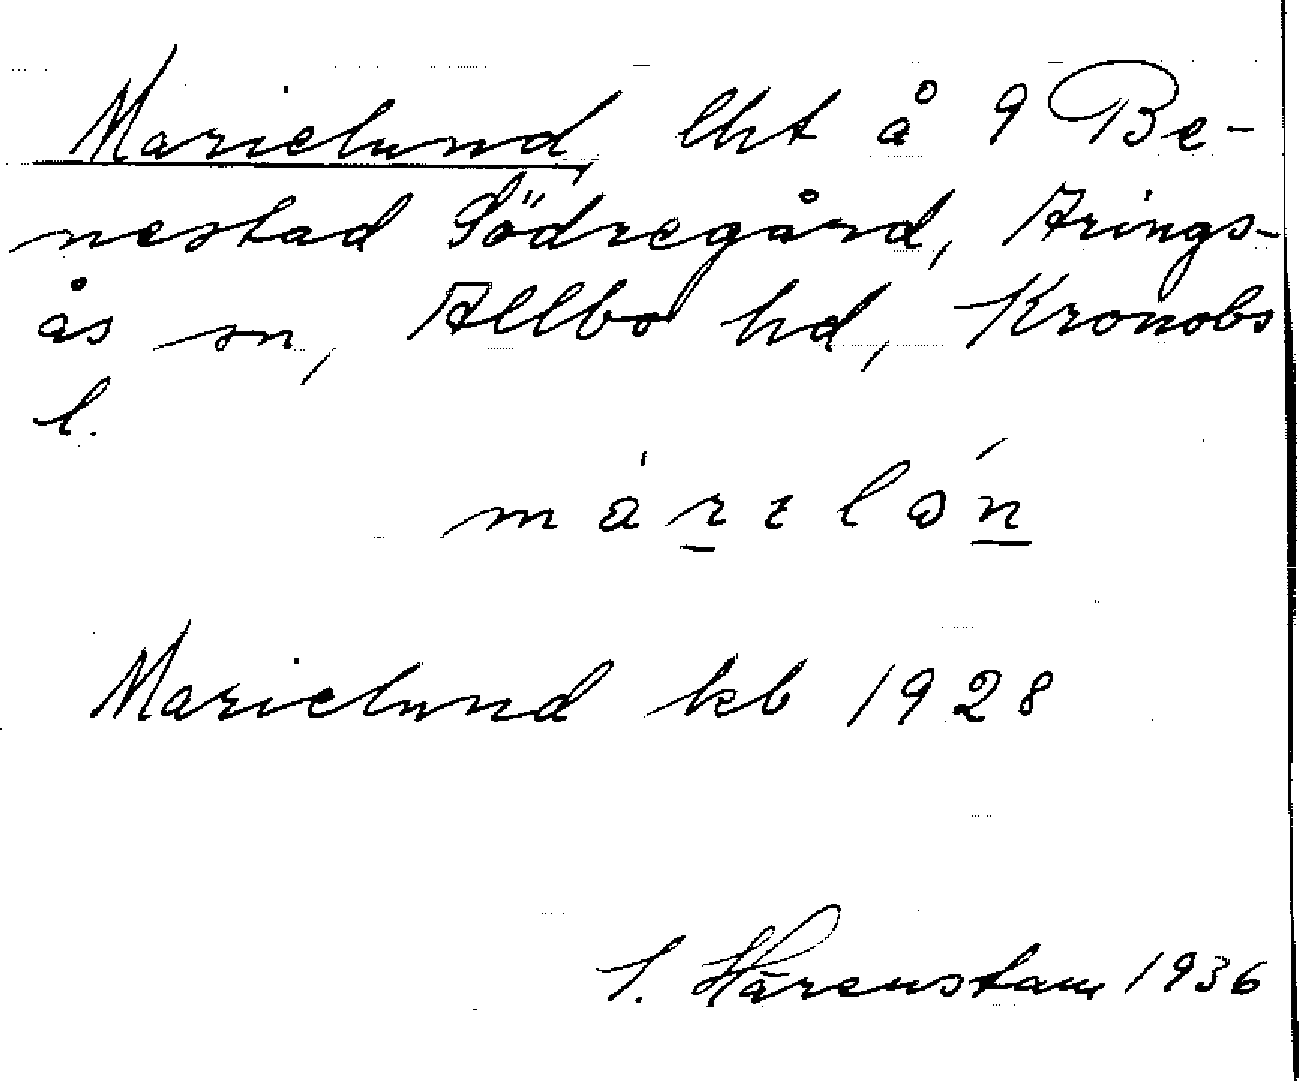 Marielund lht å 9 Be-
nestad Södregård, Arings-
ås sn, Allbo hd, Kronobs
l.
Marielund kb 1928
S. Härenstam 1936